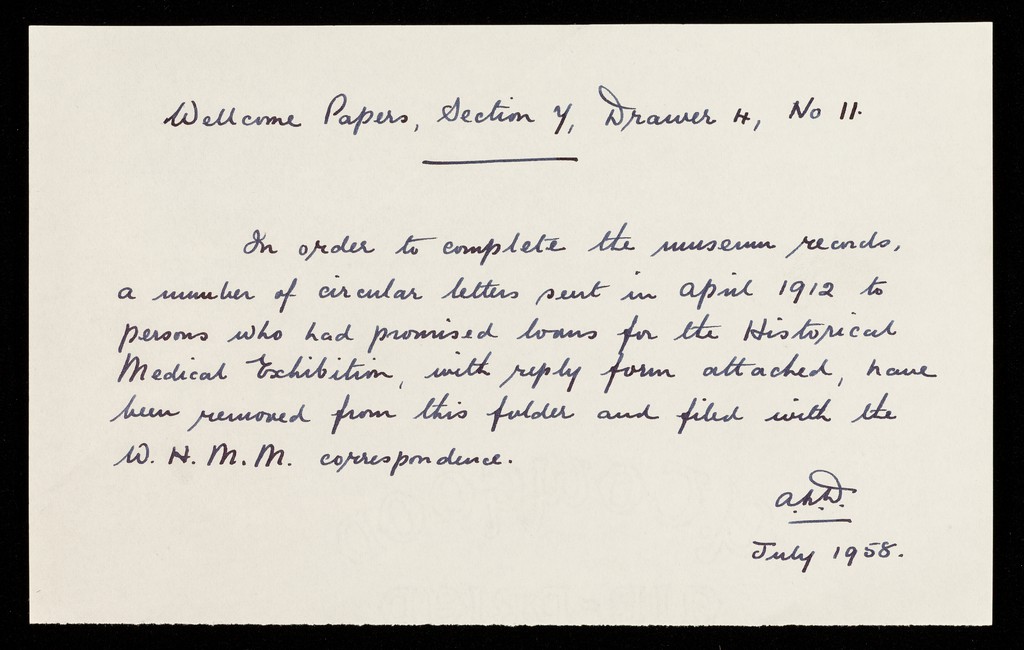 Wellcome Papers, Section Y, Drawer 4, No 11.
In order to complete the museum records,
a number of circular letters sent in April 1912 to
persons who had promised loans for the Historical
Medical Exhibition, with reply form attached, have
been removed from this folder and filed with the
W. H. M. M. correspondence.
July 1958.